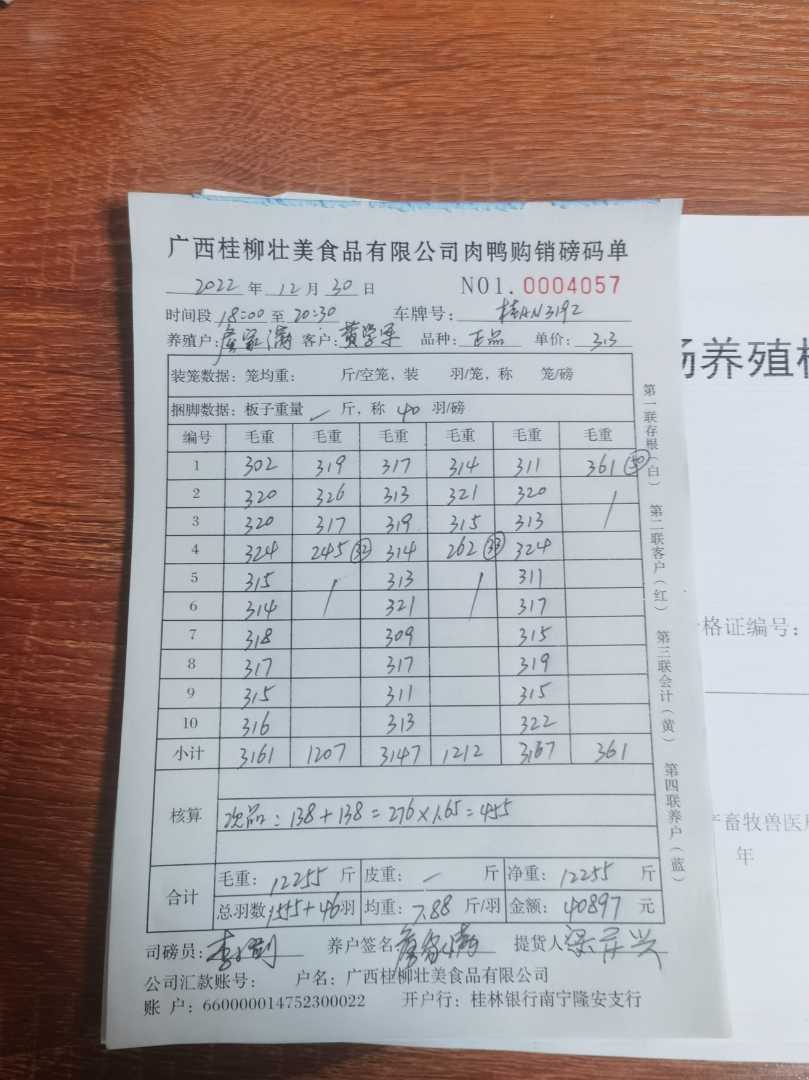 广西桂柳壮美食品有限公司肉鸭购销磅码单
2022 年 12 月 30 日 NO1.0004057
时间段 18:00 至 20:30 车牌号: 桂AN3192
养殖户: 客户: 黄学 品种: 正品 单价: 3.3
装笼数据: 笼均重: 斤/空笼, 装 羽/笼, 称 笼/磅
捆脚数据: 板子重量 / 斤, 称 40 羽/磅
编号 毛重 毛重 毛重 毛重 毛重 毛重
1 302 319 317 314 311 361 (50)
2 320 326 313 321 320 /
3 320 317 319 315 313
4 324 245 (32) 314 262 (33) 324
5 315 / 313 / 311
6 314 321 317
7 318 309 315
8 317 317 319
9 315 311 315
10 316 313 322
小计 3161 1207 3147 1212 3167 361
核算 次品: 138+138=276×1.65=455
合计 毛重: 12255 斤 皮重: — 斤 净重: 12255 斤
总羽数 1555+46 羽 均重: 7.88 斤/羽 金额: 40897 元
司磅员: 养户签名 提货人
公司汇款账号: 户名: 广西桂柳壮美食品有限公司
账 户: 660000014752300022 开户行: 桂林银行南宁隆安支行
第一联存根(白) 第二联客户(红) 第三联会计(黄) 第四联养户(蓝)
场养殖
格证编号:
畜牧兽医
年